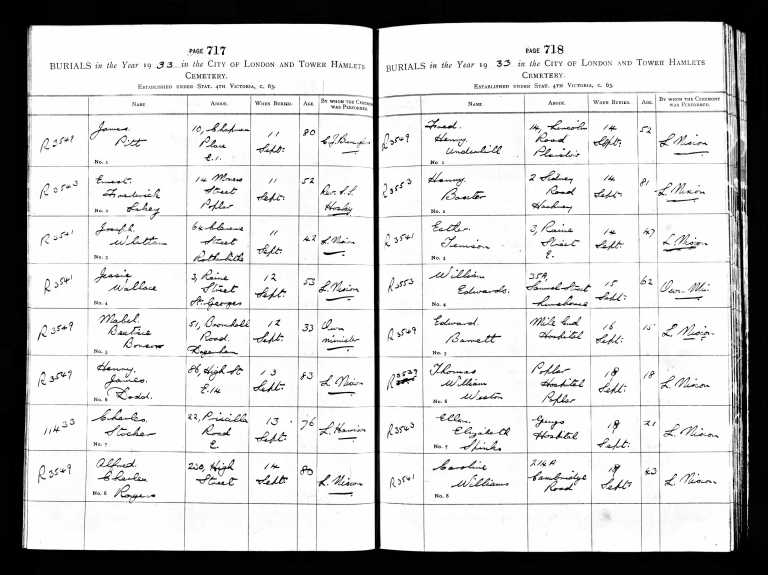 PAGE 717
BURIALS in the Year 1933 in the CITY OF LONDON AND TOWER HAMLETS
CEMETERY.
ESTABLISHED UNDER STAT. 4TH VICTORIA, C. 63.
NAME ABODE. WHEN BURIED. AGE. BY WHOM THE CEREMONY WAS PERFORMED.
R3549 James 10, Chapman 11 80
Pitt Place Sept.
No. 1 E.1.
R3543 Ernest 14 Street 11 52 Rev.
Frederick Poplar Sept.
No. 2
R3541 Joseph 11 42 L. Nixon
Street Sept.
No. 3 Rotherhithe
R3541 Jessie 3, Raine 12 53 L. Nixon
Wallace Street Sept.
No. 4 St. Georges
R3549 Mabel 51, 12 33 Own
Beatrice Road Sept. minister
No. 5 Dagenham
R3549 Henry 86, High St 13 83 L. Nixon
James E.14 Sept.
No. 6 Dodd.
11433 Charles 22, Priscilla 13 76 L.
Stocker Road Sept.
No. 7 E.
R3549 Alfred 230, High 14 80 L. Nixon
Charles Street Sept.
No. 8 Rogers
PAGE 718
BURIALS in the Year 1933 in the CITY OF LONDON AND TOWER HAMLETS
CEMETERY.
ESTABLISHED UNDER STAT. 4TH VICTORIA, C. 63.
NAME ABODE. WHEN BURIED. AGE. BY WHOM THE CEREMONY WAS PERFORMED.
R3549 Fred. 14, Lincoln 14 52 L. Nixon
Henry Road Sept.
No. 1 Underhill Plaistow
R3553 Henry 2 Sidney 14 81 L. Nixon
Baxter Road Sept.
No. 2 Hackney
R3541 Esther 3, Raine 14 47 L. Nixon
Street Sept.
No. 3 E.
R3553 William 35A, 15 62 Own Min
Edwards. Samuel Street Sept.
No. 4 Limehouse
R3549 Edward Mile End 16 L. Nixon
Barnett Hospital Sept.
No. 5
R3539 Thomas Poplar 18 18 L. Nixon
William Hospital Sept.
No. 6 Weston Poplar
R3543 Ellen Guys 19 21 L. Nixon
Elizabeth Hospital Sept.
No. 7 Spinks
R3541 Caroline 214A 19 43 L. Nixon
Williams Cambridge Sept.
No. 8 Road